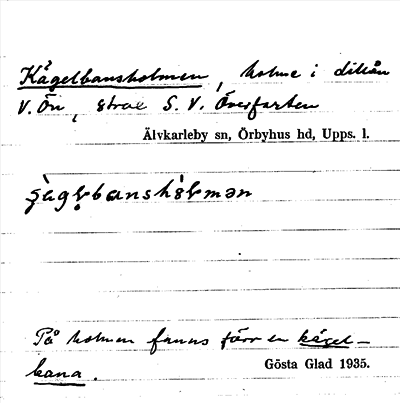 Kägelbansholmen, holme i dälån
V. Ön, strax S. V. Överfarten
Älvkarleby sn, Örbyhus hd, Upps. l.
På holmen fanns förr en kägel-
bana.
Gösta Glad 1935.